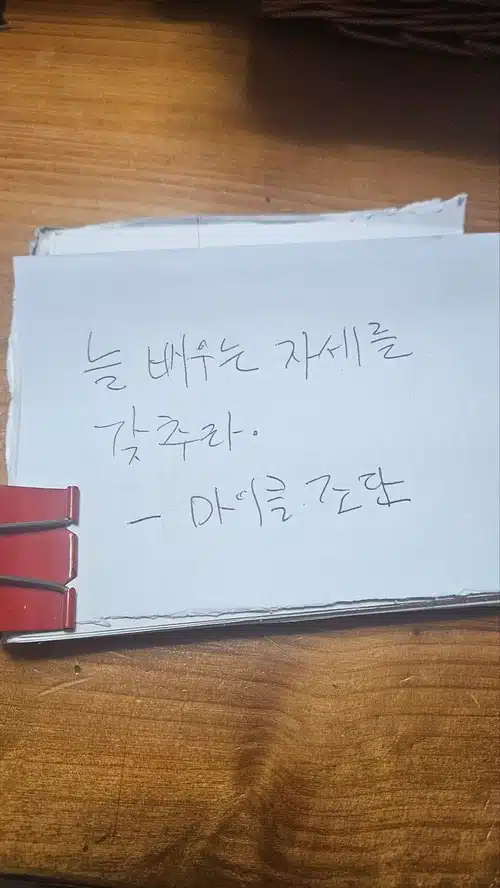 늘 배우는 자세를
갖추라.
- 마이클 조단